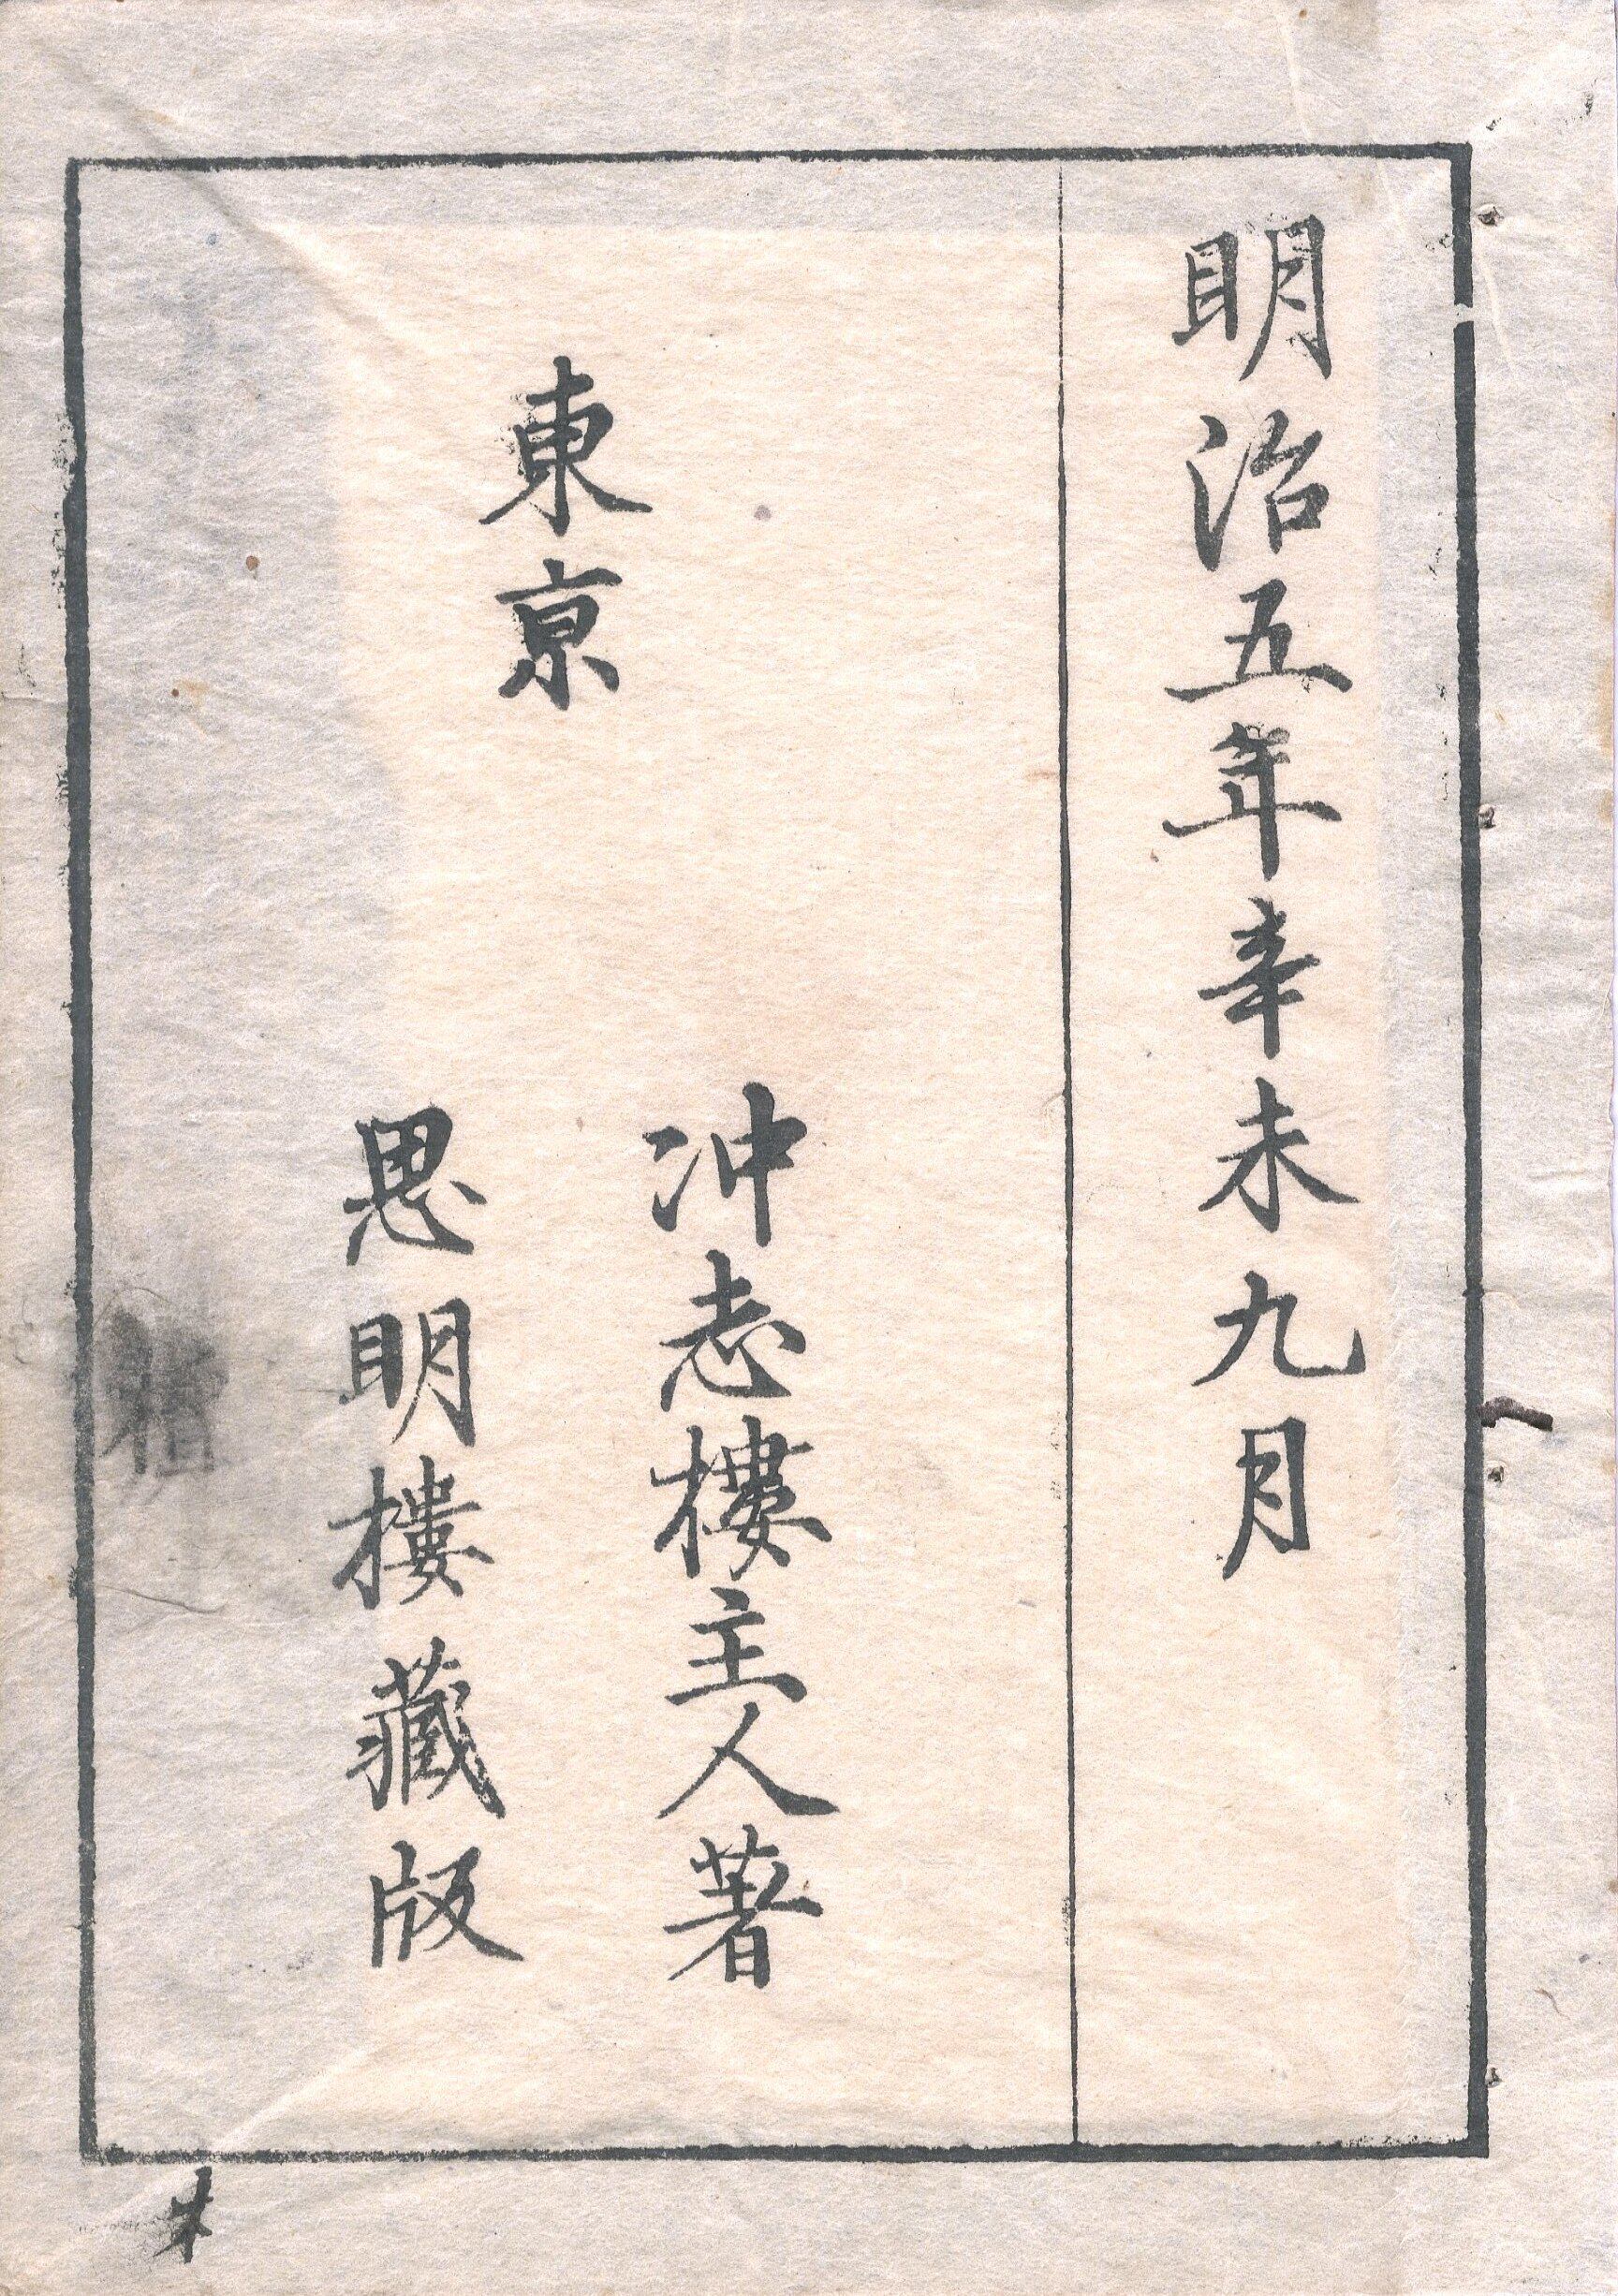 明治五年辛未九月
冲志樓主人著
東京
思明樓藏版